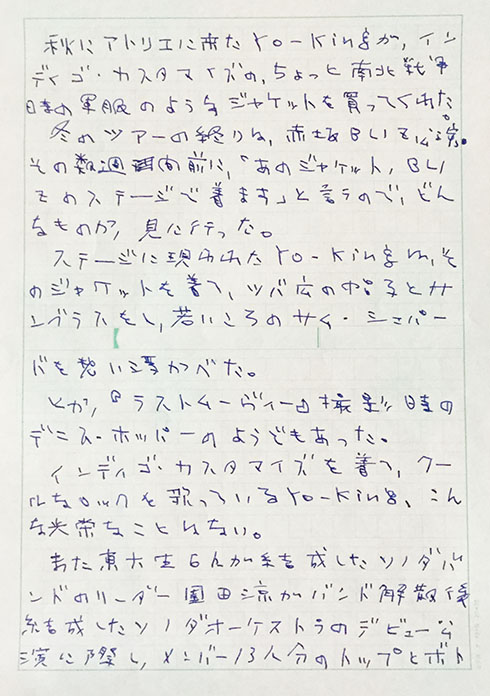 秋にアトリエに来たYO-Kingが、イン
ディゴ・カスタマイズの、ちょっと南北戦争
時の軍服のようなジャケットを買ってくれた。
冬のツアーの終りは、赤坂BLITZ公演。
その数週間前に、「あのジャケット、BLI
TZのステージで着ます」と言うので、どん
なものか、見に行った。
ステージに現われたYO-Kingは、そ
のジャケットを着て、ツバ広の帽子とサ
ングラスをし、若いころのサム・シェパー
ドを想い浮かべた。
とか、『ラストムーヴィー』撮影時の
デニス・ホッパーのようでもあった。
インディゴ・カスタマイズを着て、クー
ルなロックを歌っているYO-King、こん
な光栄なことはない。
また東大生6人が結成したソノダバ
ンドのリーダー園田涼がバンド解散後
結成したソノダオーケストラのデビュー公
演に際し、メンバー13人分のトップとボト